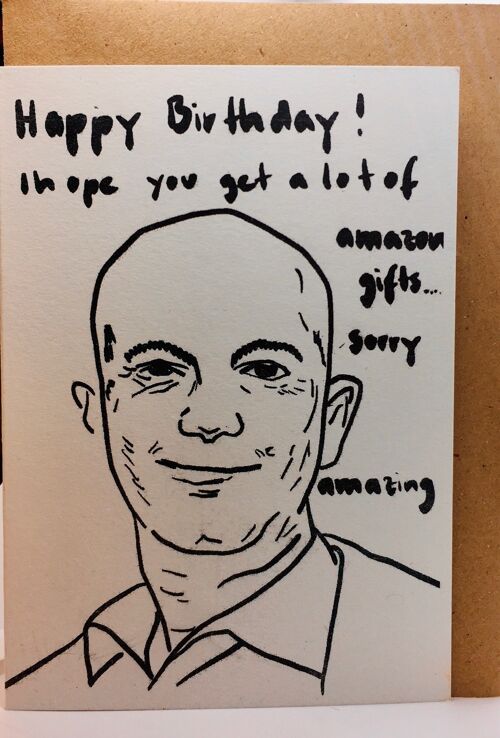 Happy Birthday!
I hope you get a lot of
amazon
gifts...
sorry
amazing